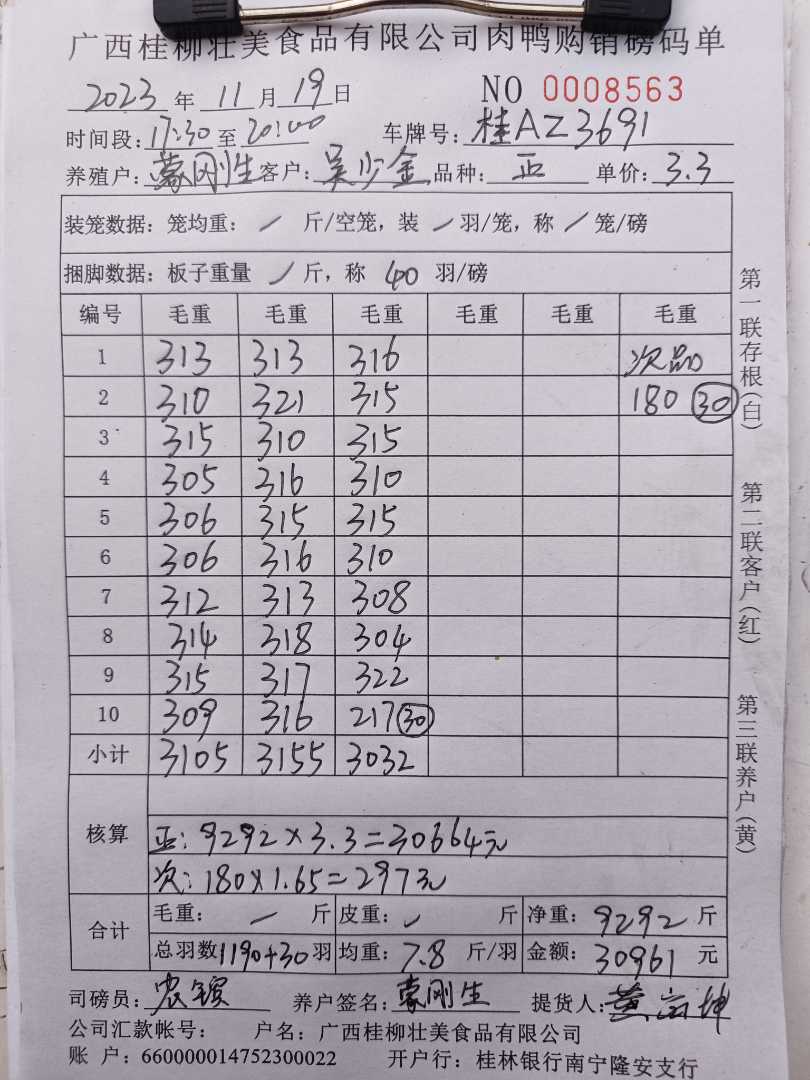 广西桂柳壮美食品有限公司肉鸭购销磅码单
2023 年 11 月 19 日 NO 0008563
时间段: 17:30 至 20:00 车牌号: 桂AZ3691
养殖户: 蒙刚生 客户: 吴少金 品种: 正 单价: 3.3
装笼数据: 笼均重: / 斤/空笼, 装 / 羽/笼, 称 / 笼/磅
捆脚数据: 板子重量 / 斤, 称 40 羽/磅
编号 毛重 毛重 毛重 毛重 毛重 毛重
1 313 313 316 次品
2 310 321 315 180 30
3 315 310 315
4 305 316 310
5 306 315 315
6 306 316 310
7 312 313 308
8 314 318 304
9 315 317 322
10 309 316 217 30
小计 3105 3155 3032
核算
正: 9292×3.3=30664元
次: 180×1.65=297元
合计
毛重: / 斤 皮重: / 斤 净重: 9292 斤
总羽数 1190+30 羽 均重: 7.8 斤/羽 金额: 30961 元
司磅员: 养户签名: 蒙刚生 提货人: 黄
公司汇款帐号: 户名: 广西桂柳壮美食品有限公司
账 户: 660000014752300022 开户行: 桂林银行南宁隆安支行
第一联存根(白)
第二联客户(红)
第三联养户(黄)